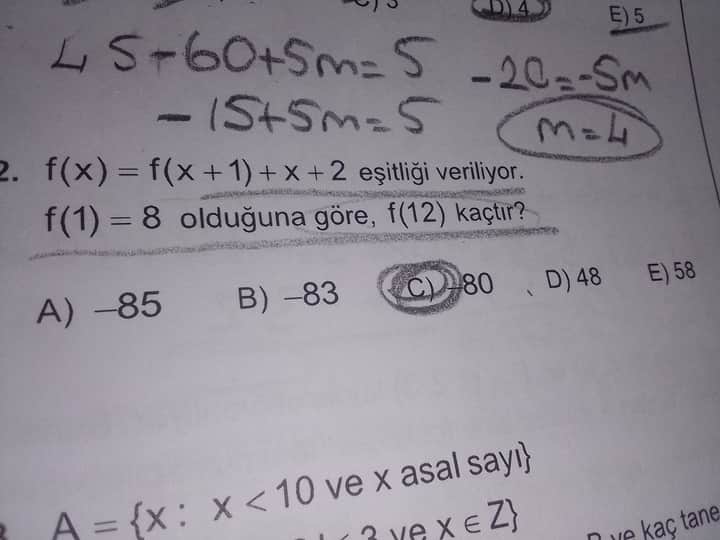 D) 4
E) 5
45-60+5m=5
-20=-5m
-15+5m=5
m=4
2. f(x) = f(x + 1) + x + 2 eşitliği veriliyor.
f(1) = 8 olduğuna göre, f(12) kaçtır?
A) –85 B) –83 C) –80 D) 48 E) 58
A = {x : x < 10 ve x asal sayı}
ve x ∈ Z}
ve kaç tane